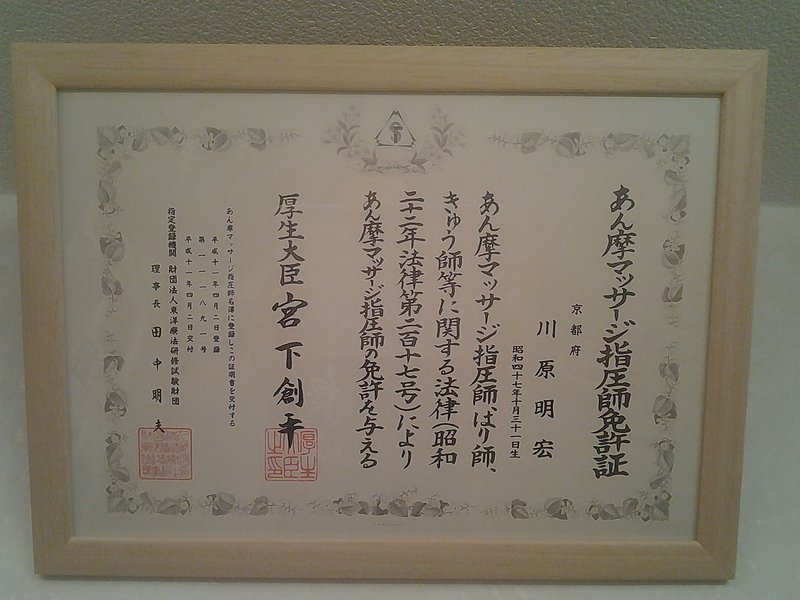 あん摩マッサージ指圧師免許証
京都府
川原明宏
昭和四十七年十月三十一日生
あん摩マッサージ指圧師、はり師、
きゅう師等に関する法律(昭和
二十二年法律第二百十七号)により
あん摩マッサージ指圧師の免許を与える
厚生大臣 宮下創平
あん摩マッサージ指圧師名簿に登録しこの証明書を交付する
平成十一年四月二日登録
第一一一八九一号
平成十一年四月二日交付
指定登録機関 財団法人東洋療法研修試験財団
理事長 田中明夫